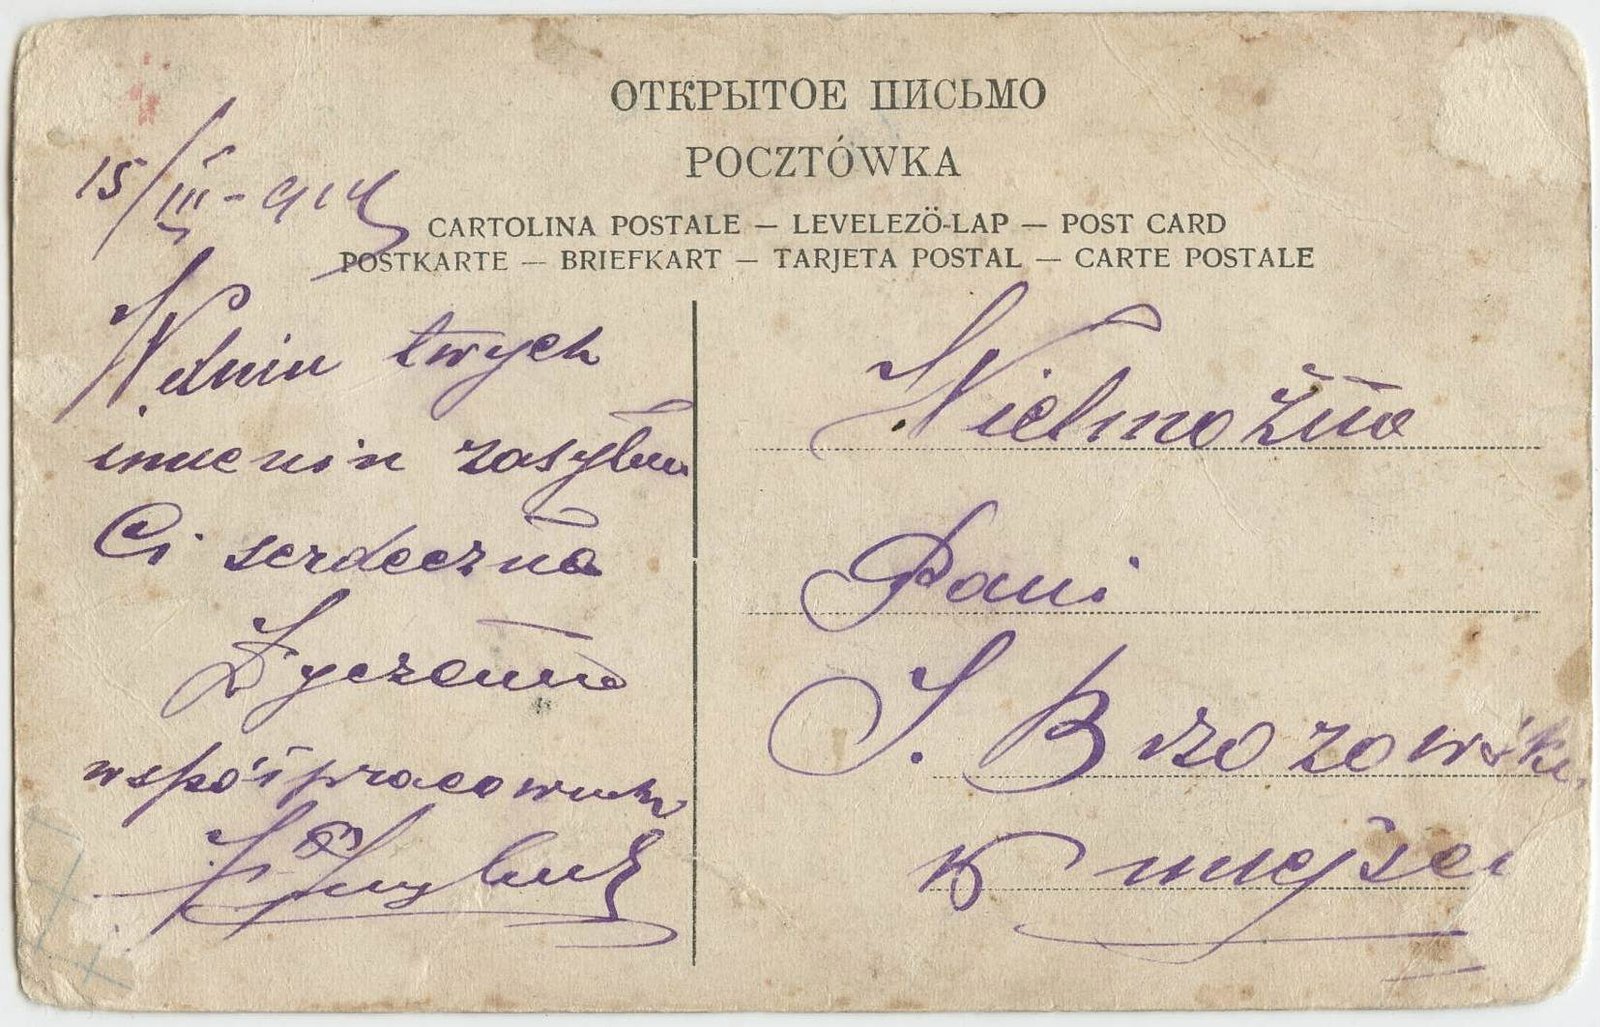 ОТКРЫТОЕ ПИСЬМО
POCZTÓWKA
CARTOLINA POSTALE — LEVELEZÖ-LAP — POST CARD
POSTKARTE — BRIEFKART — TARJETA POSTAL — CARTE POSTALE
15/III - 914
W dniu twych
imienin zasyłam
Ci serdeczna
Życzenia
współpracownik
Wielmożna
Pani
J. Brzozowska
w miejscu